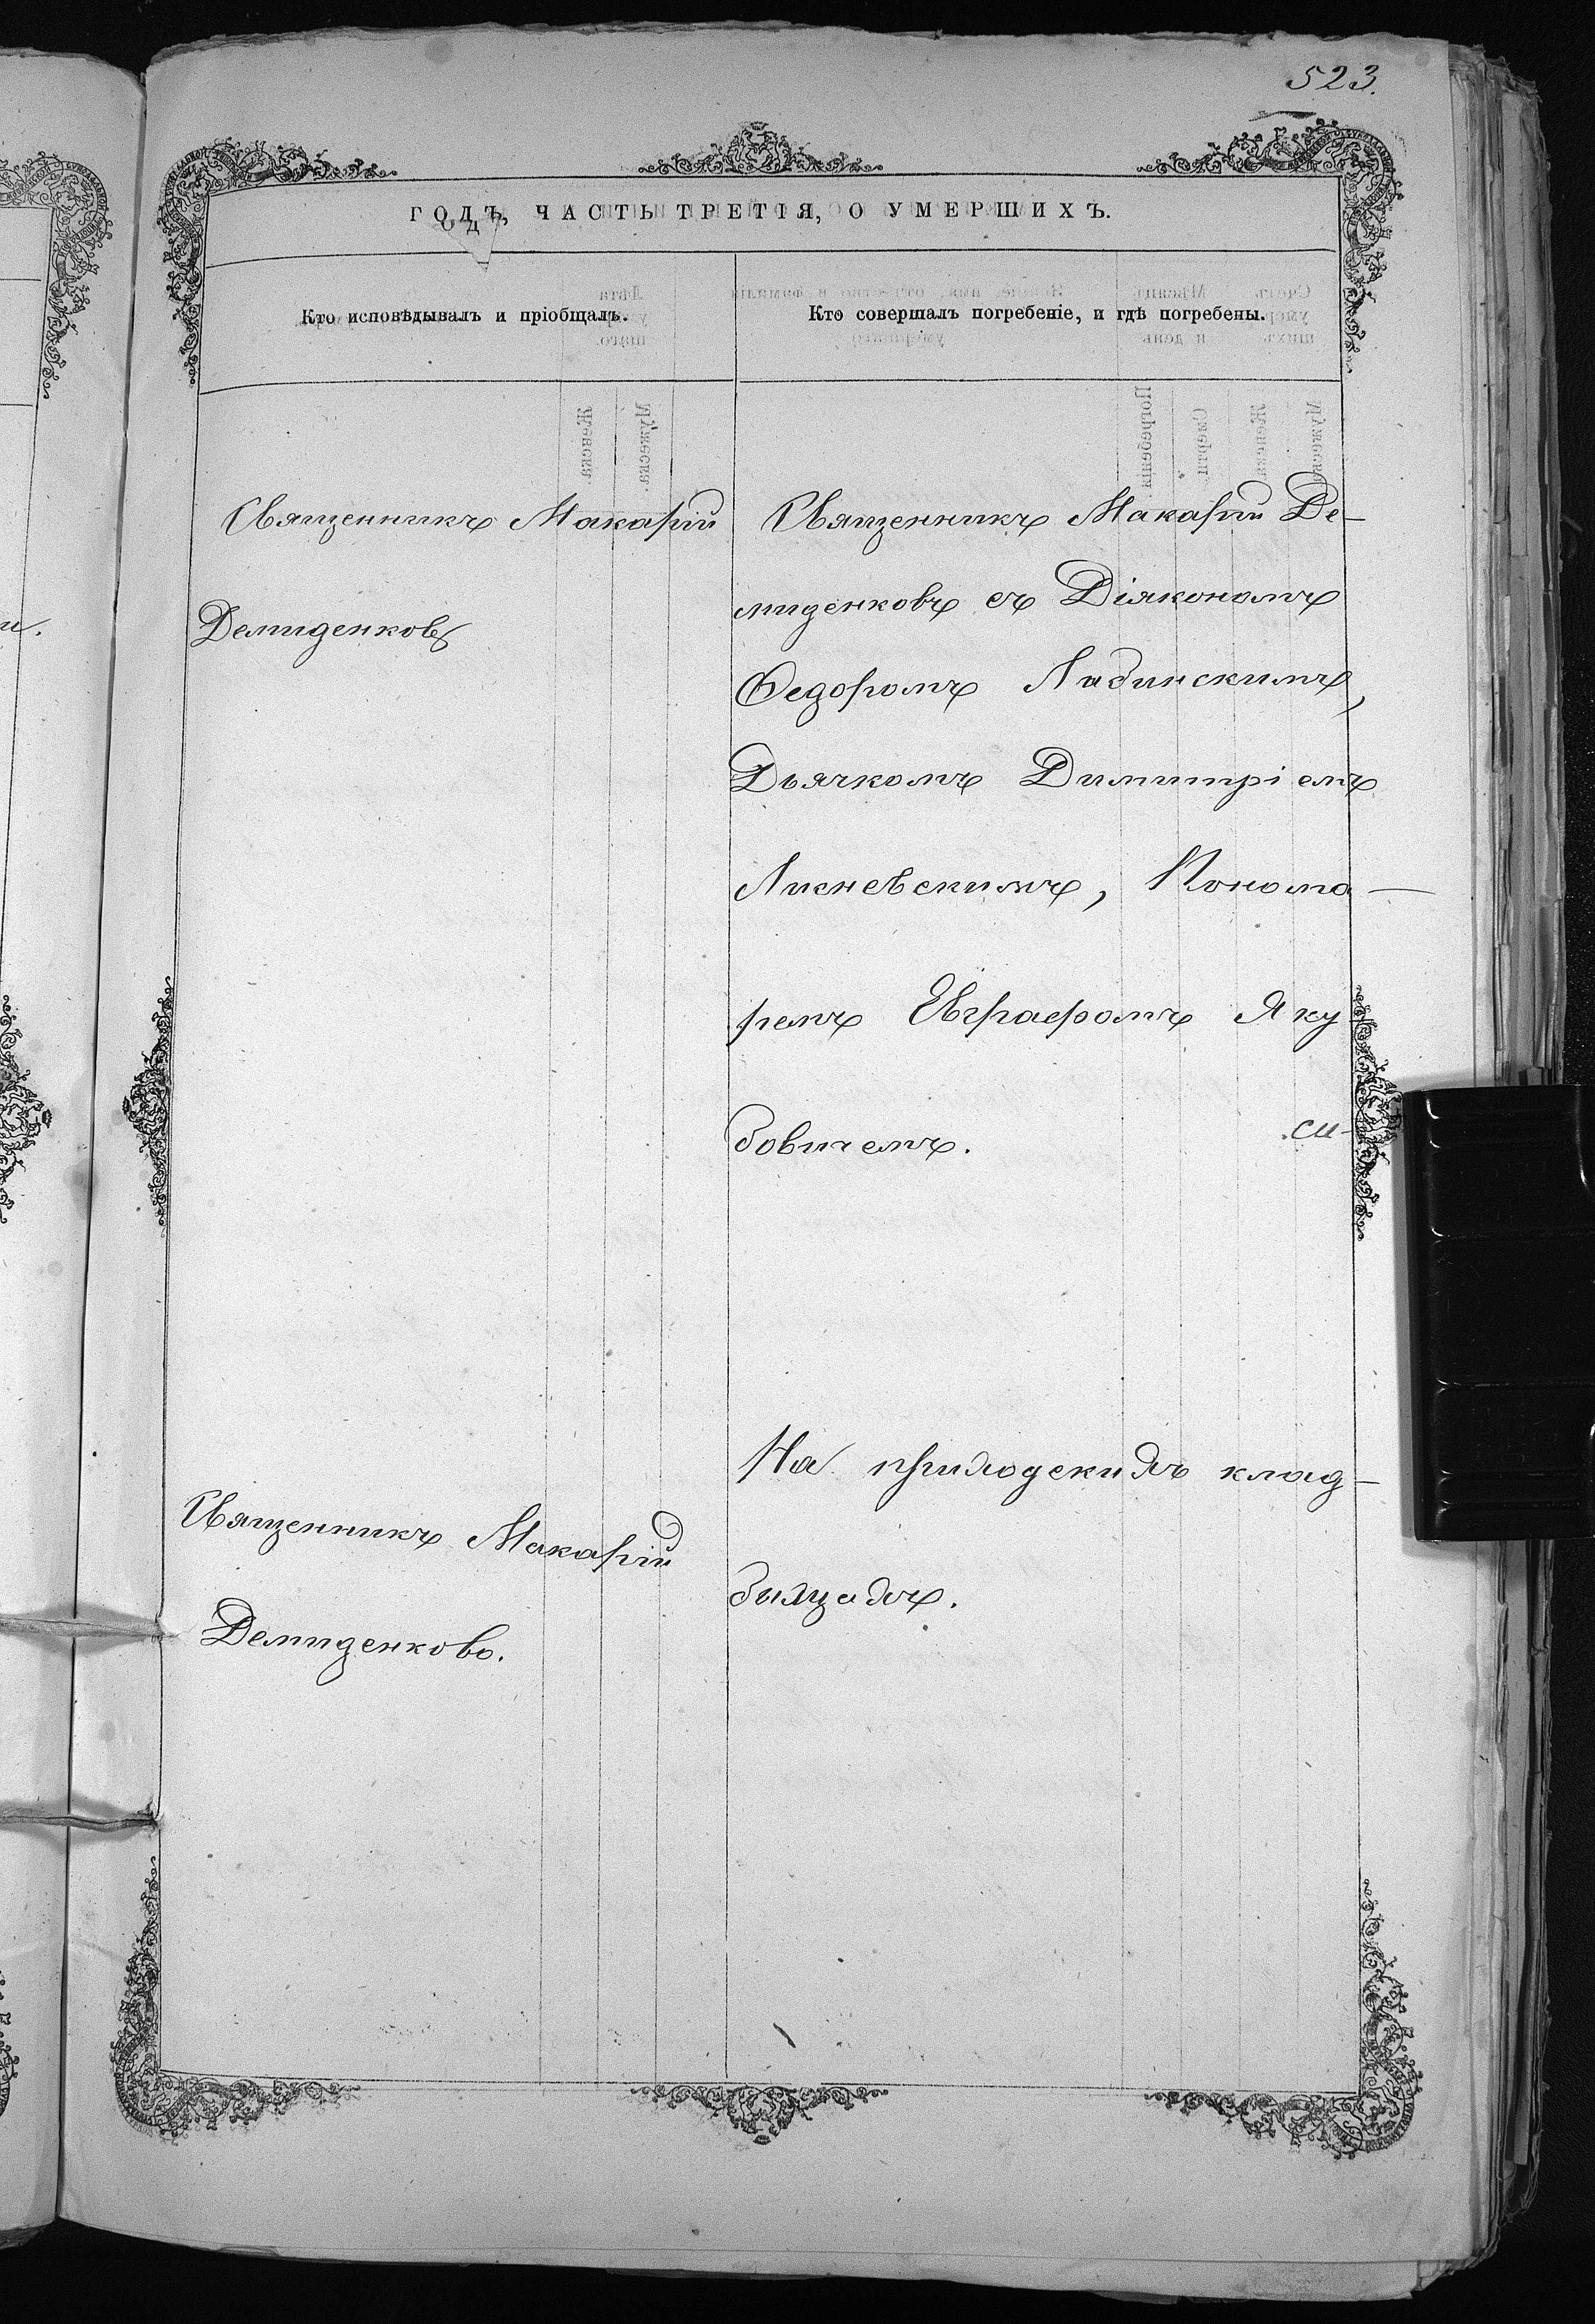 523.
ГОДЪ, ЧАСТЬ ТРЕТІЯ, О УМЕРШИХЪ.
Кто исповѣдывалъ и пріобщалъ.
Кто совершалъ погребеніе, и гдѣ погребены.
Священникъ Макарій
Демиденковъ
Священникъ Макарій Де-
миденковъ съ Діякономъ
Федоромъ Лабинскимъ,
Дьячкомъ Димитріемъ
Лисневскимъ, Понома-
ремъ Евграфомъ Яку-
бовичемъ.
Священникъ Макарій
Демиденковъ.
На приходскихъ клад-
бищахъ.